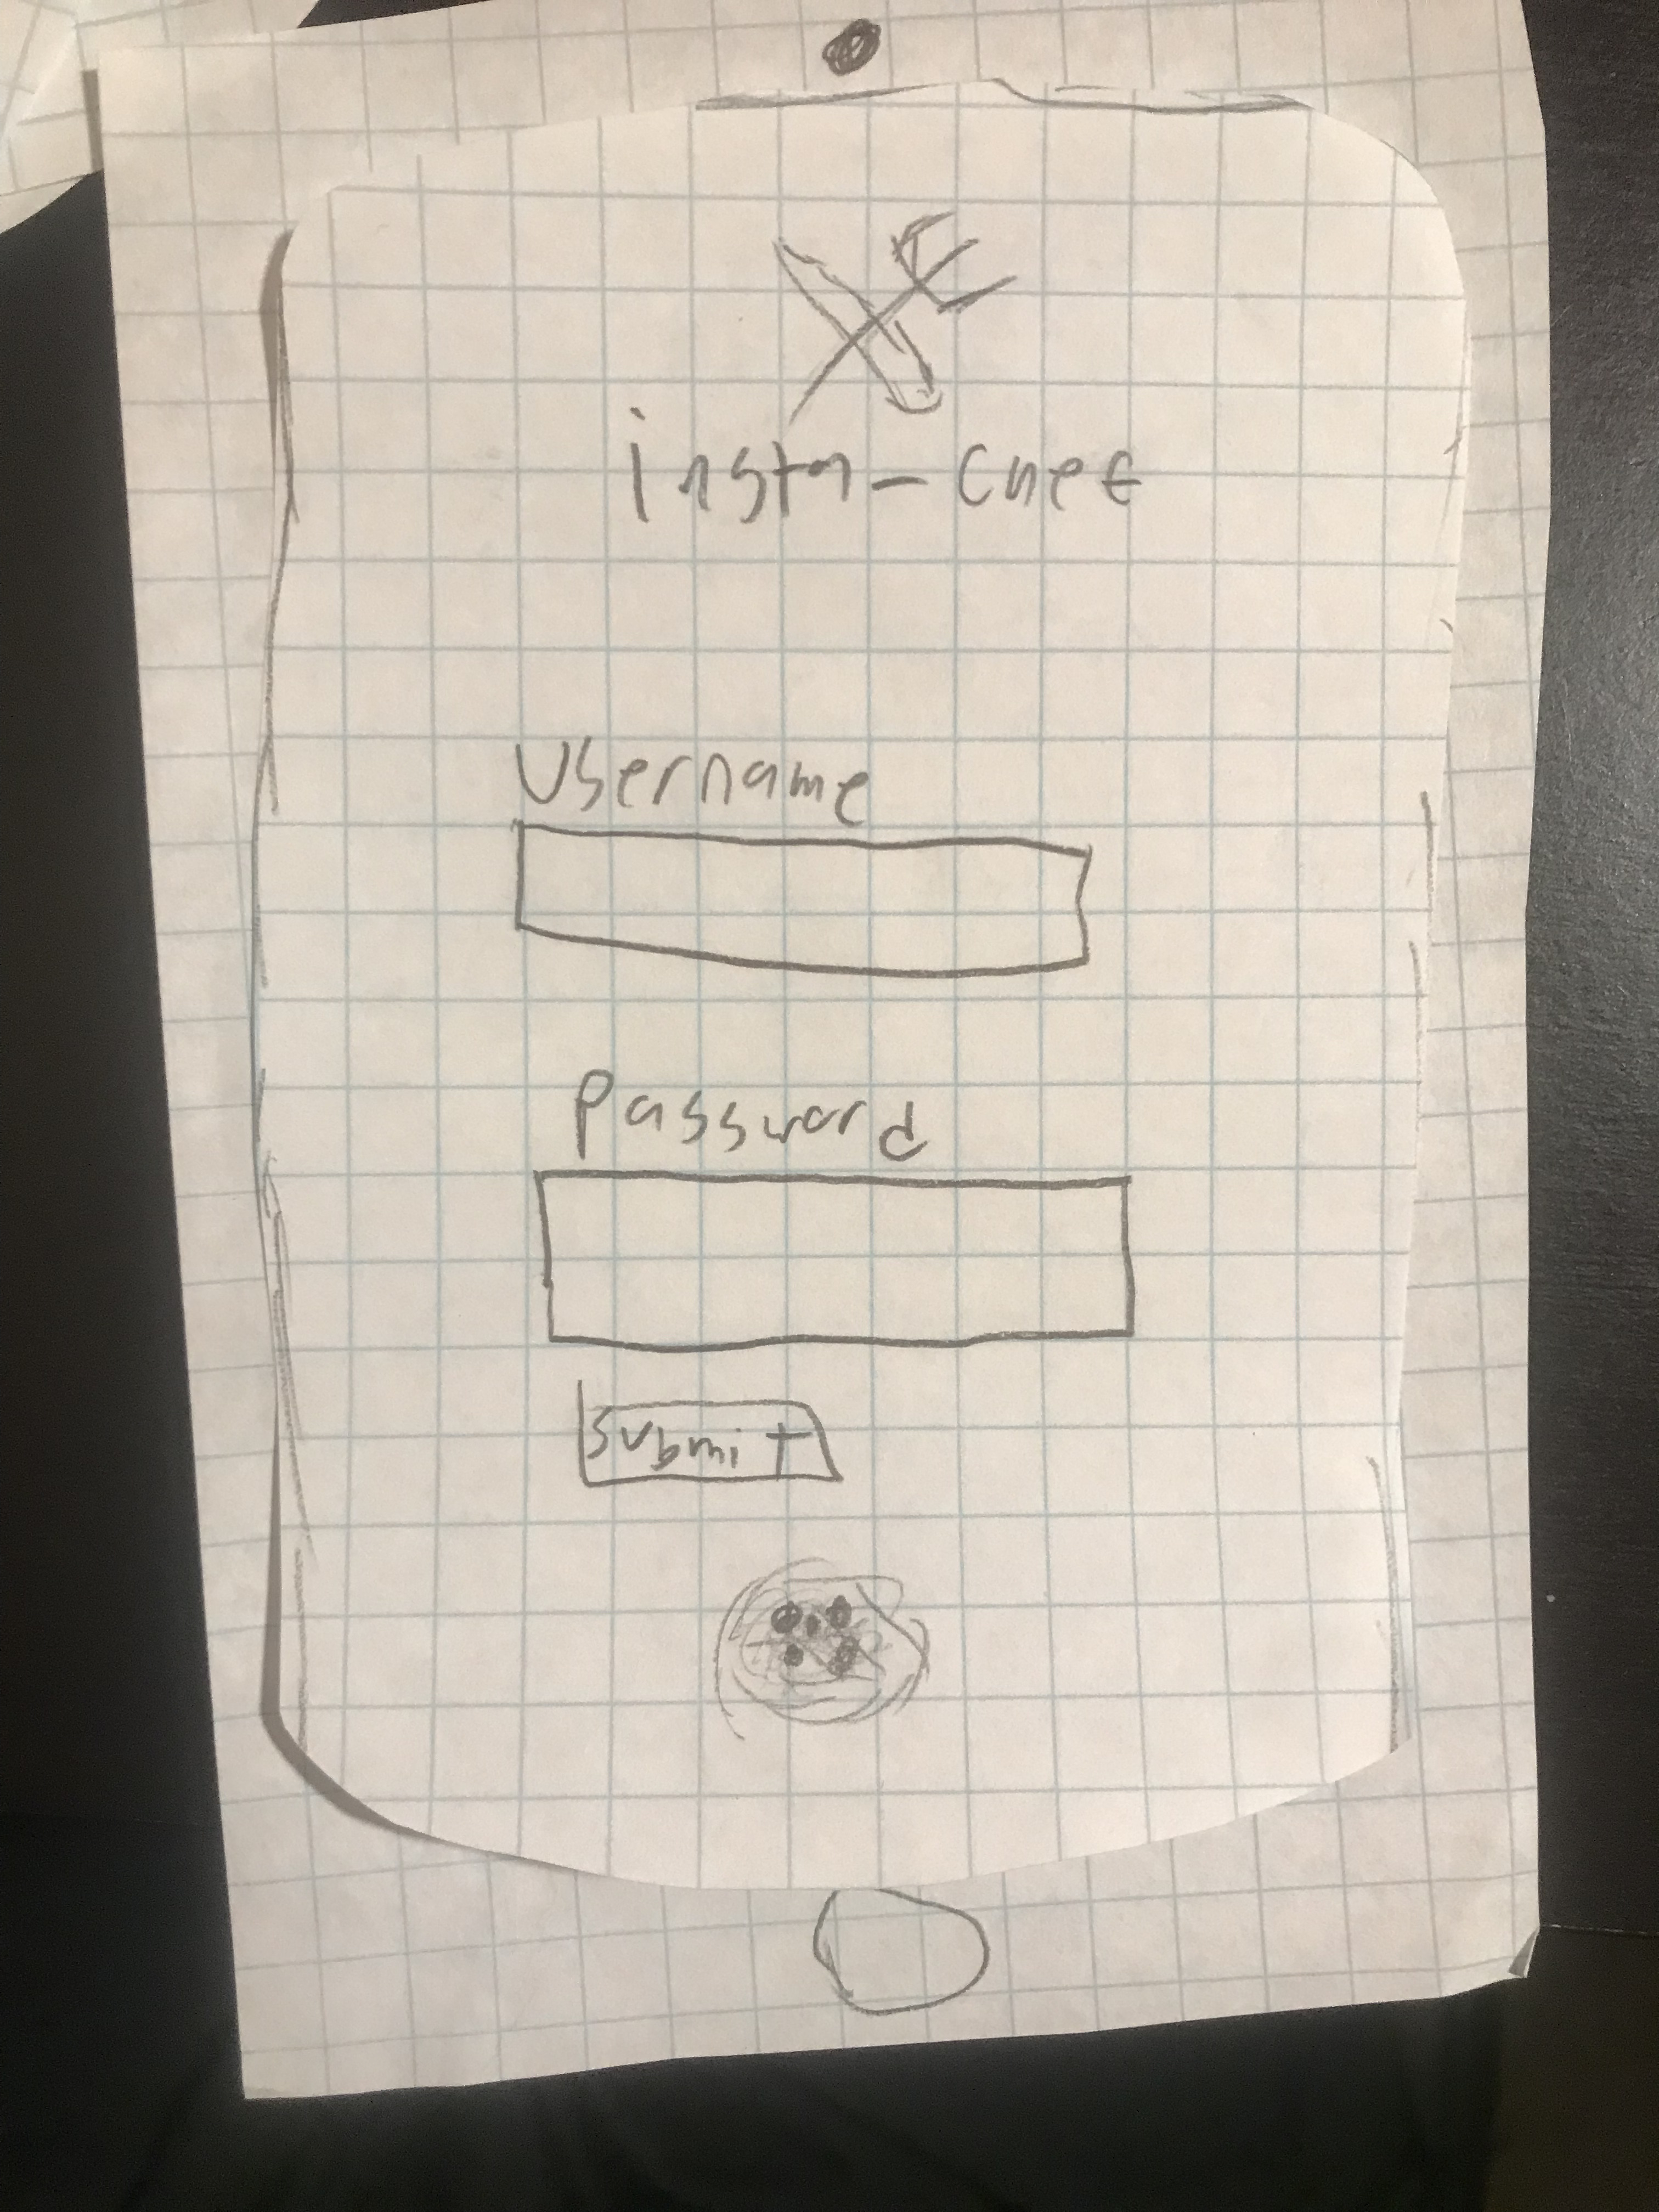 insta-chef
Username
Password
submit